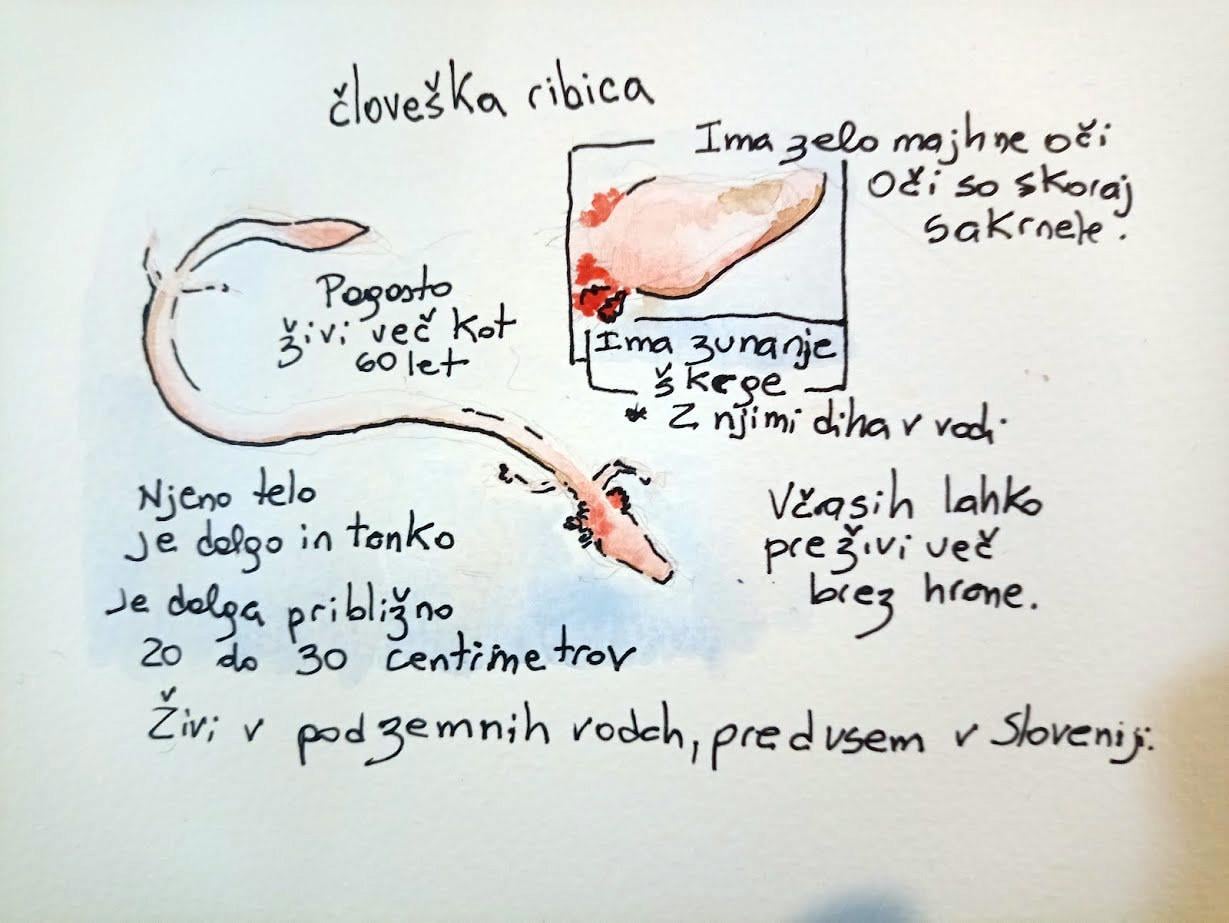 človeška ribica
Ima zelo majhne oči
Oči so skoraj
sakrnele.
Pogosto
živi več kot
60 let
Ima zunanje
škrge
* Z njimi diha v vodi.
Njeno telo
je dolgo in tanko
Je dolga približno
20 do 30 centimetrov
Včasih lahko
preživi več
brez hrane.
Živi v podzemnih vodah, predvsem v Sloveniji.